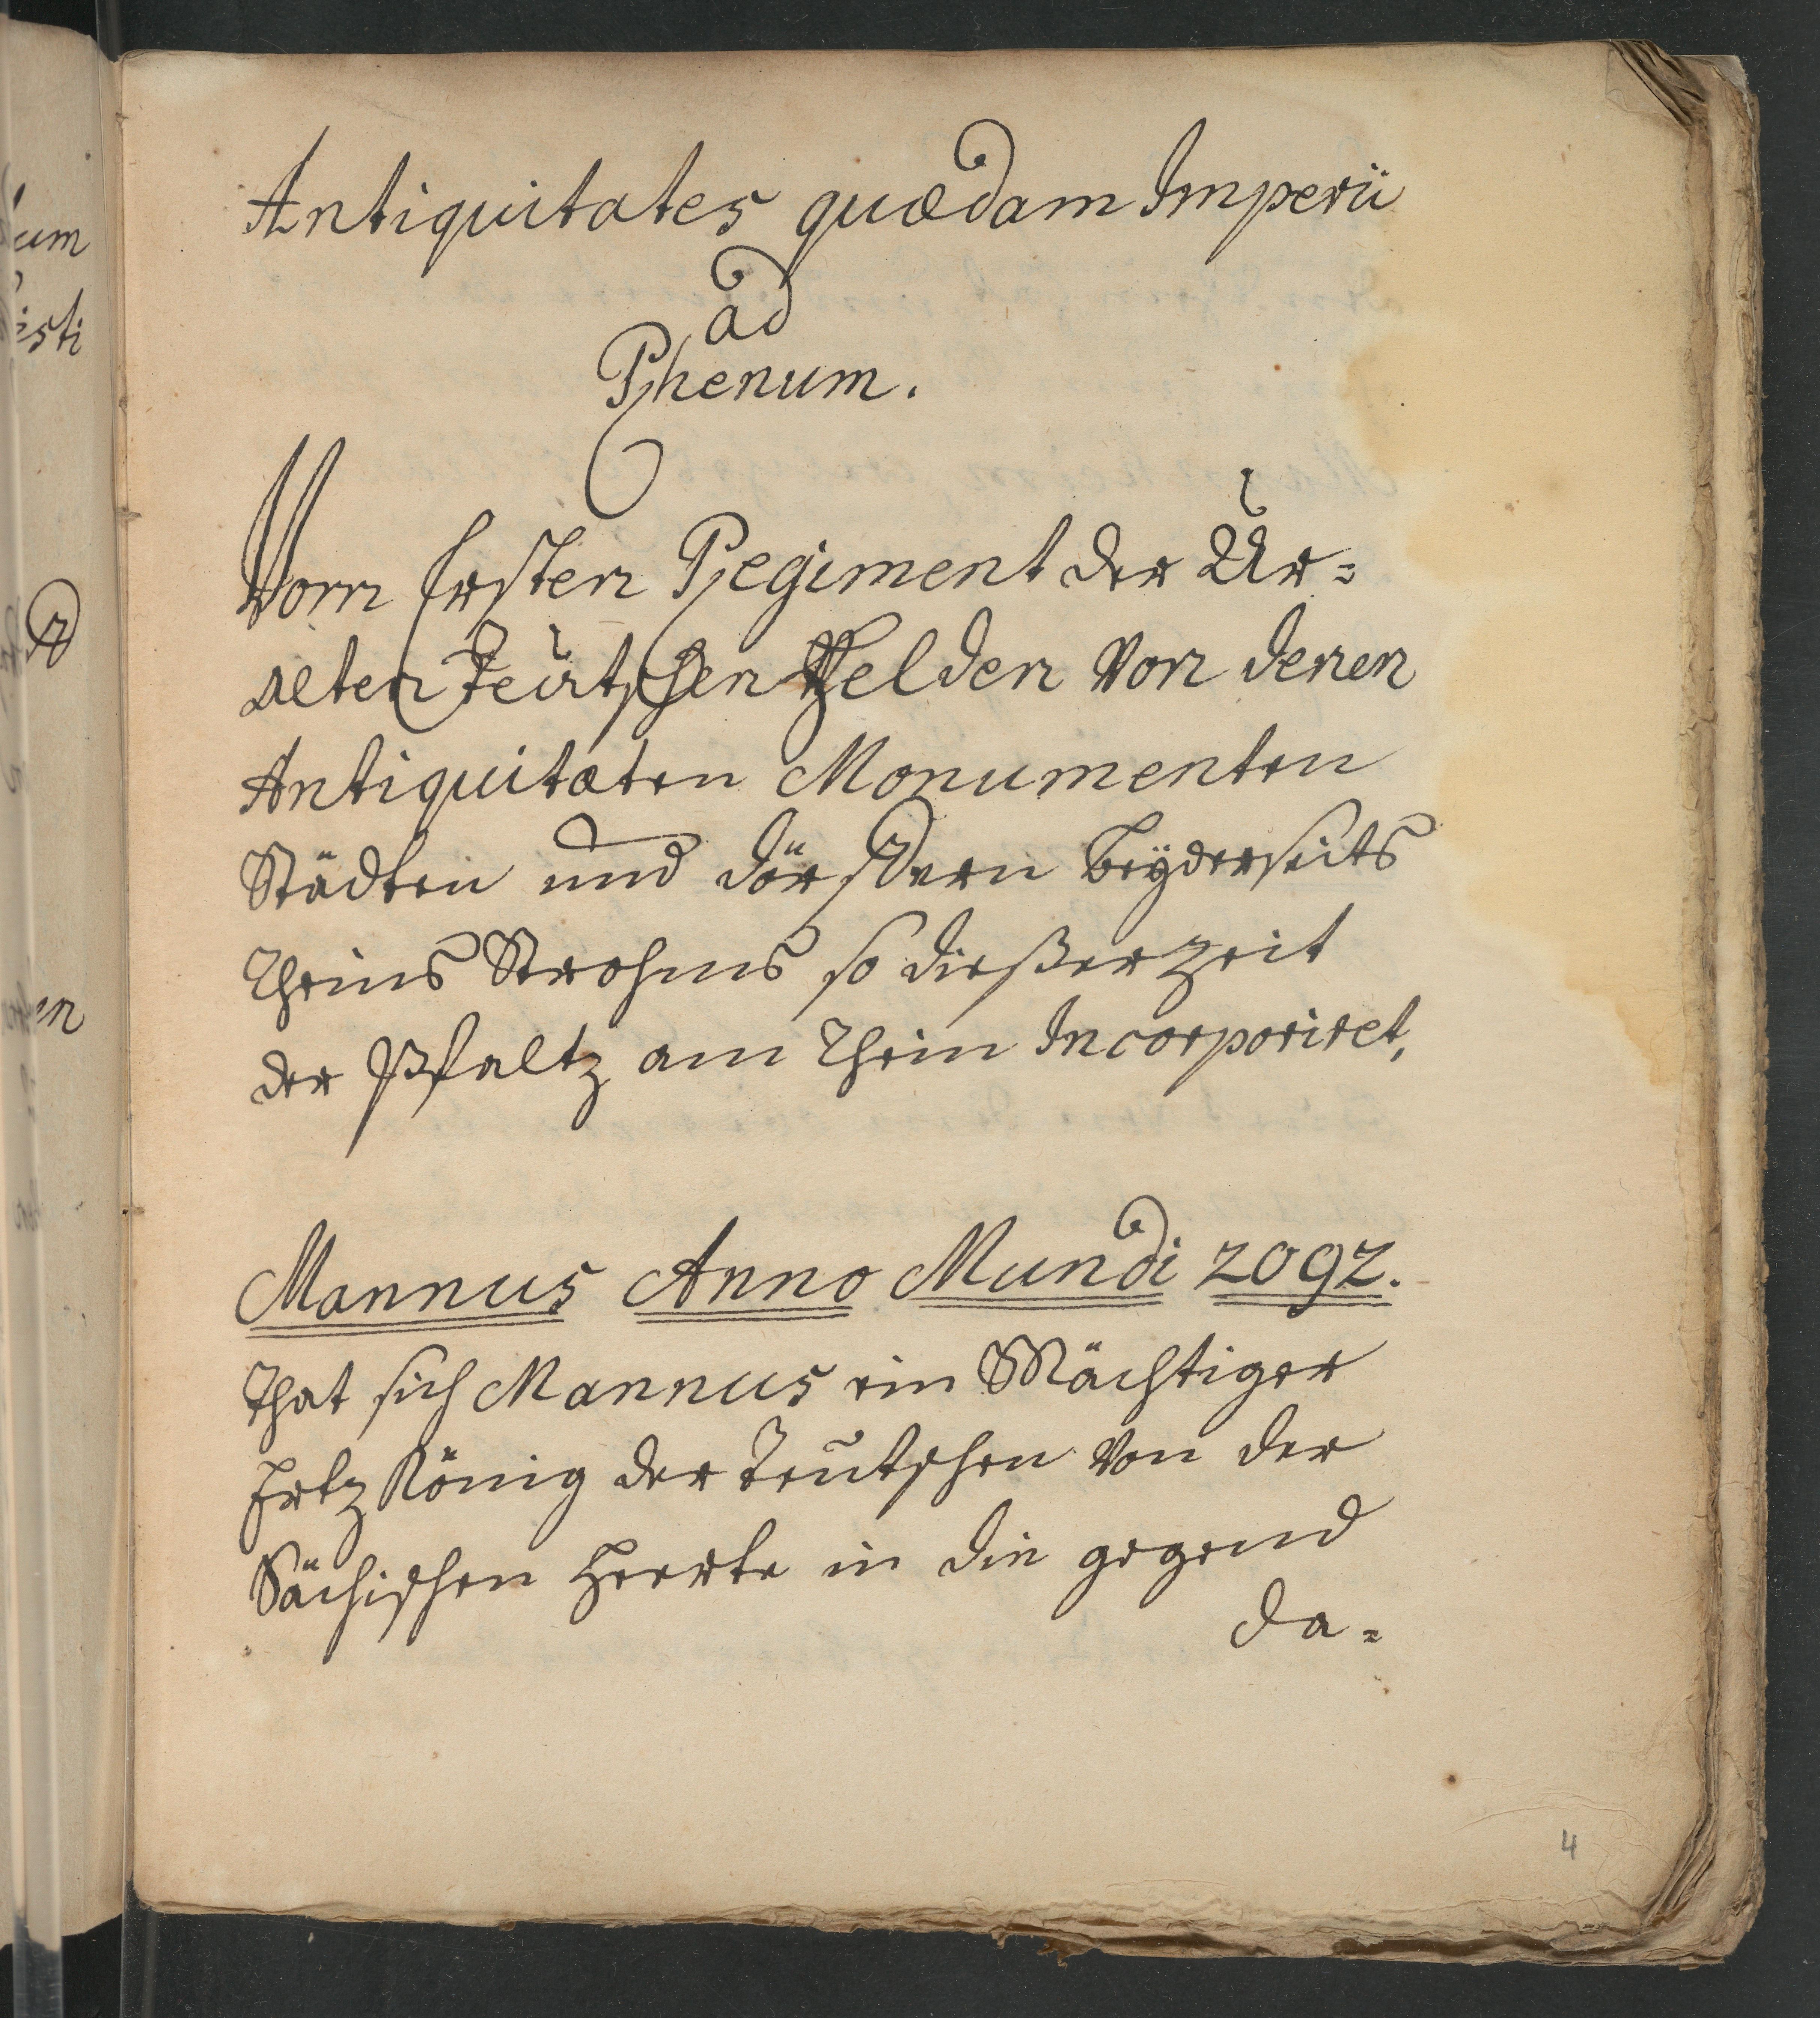 Antiquitates quædam Imperii
ad
Rhenum.
Vom Ersten Regiment der Ur=
alten Teutschen Helden Von denen
Antiquitæten Monumenten
Städten und dörffern beÿderseits
Rheins Strohms so dießer Zeit
der Pfaltz am Rhein Incorporiret,
Mannus Anno Mundi 2092.
That sich Mannus ein Mächtiger
Ertz König der Teutschen Von der
Sächischen in die gegend
da=
4
um
isti
en